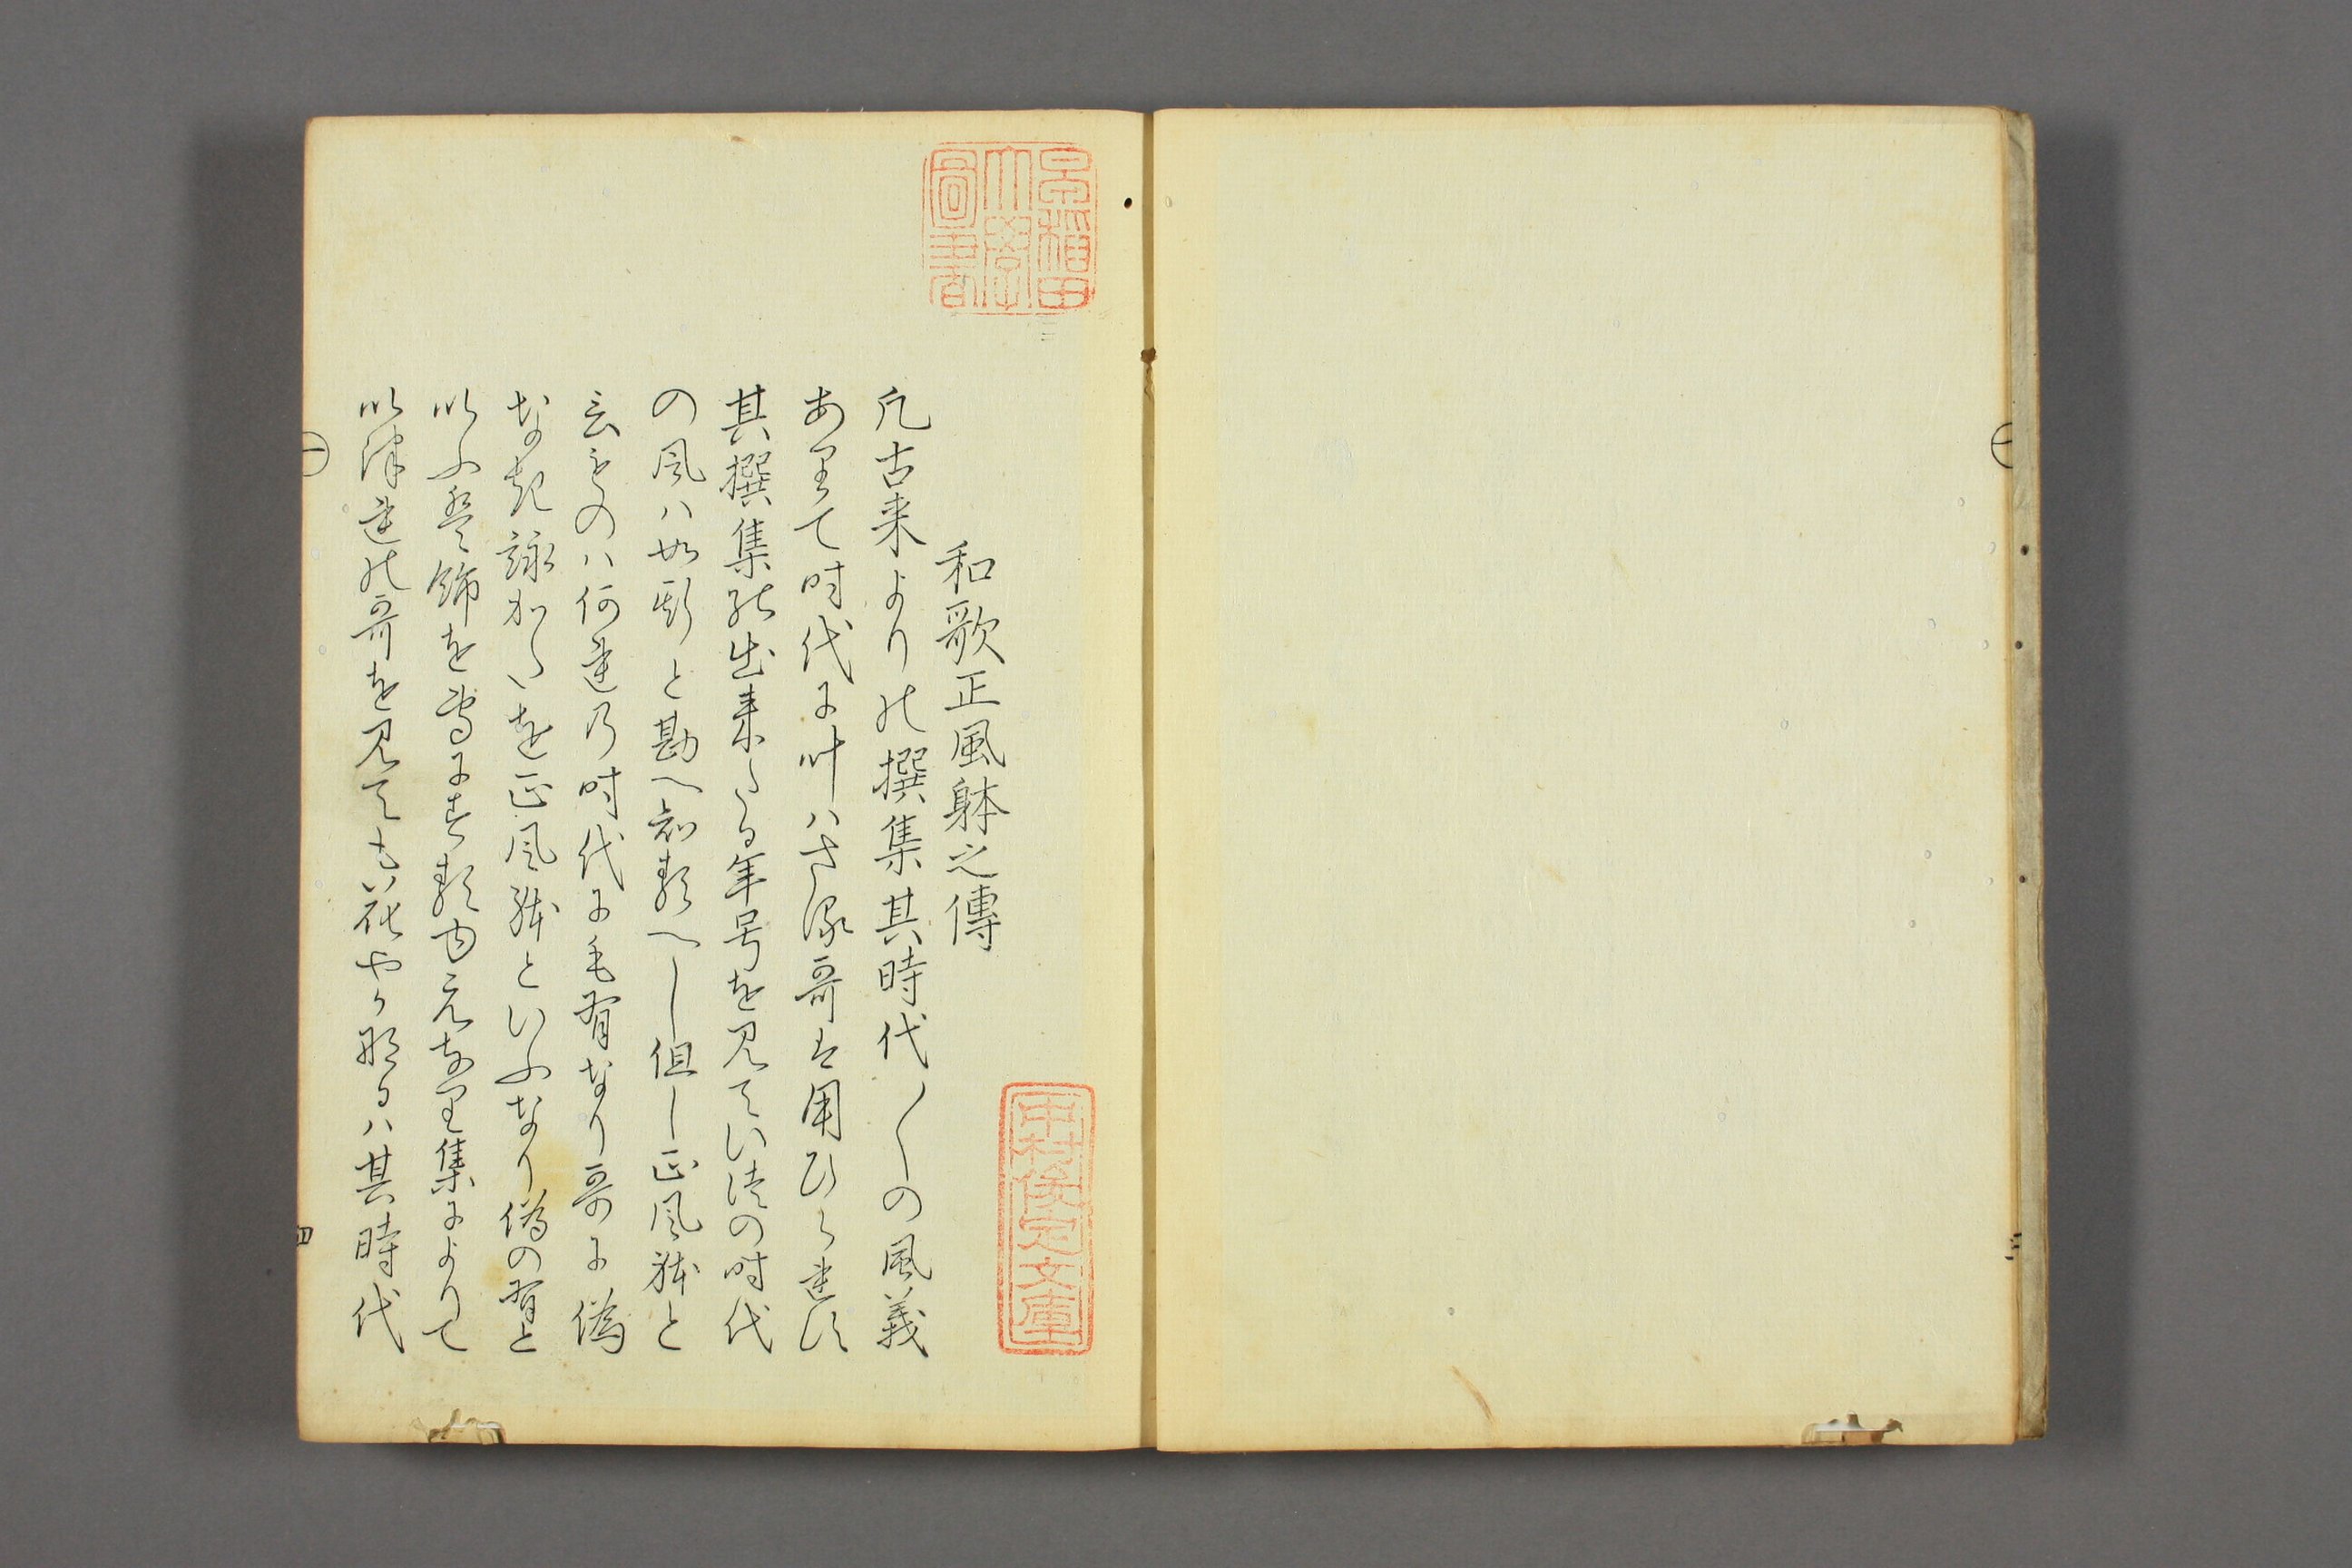 早稲田
大學
圖書
中村俊定文庫
和歌正風躰之傳
凢古来よりの撰集其時代〱の風義
ありて時代に叶ハさる哥は用ひられす
其撰集の出来たる年号を見ていつの時代
の風ハ如斯と勘へ知るへし但し正風躰と
云ものハ何れの時代にも有なり哥に偽
なき詠かたを正風躰といふなり偽の有と
いふは餝を専にする由えなり集によりて
いつれの哥を見ても花やかなるハ其時代
一